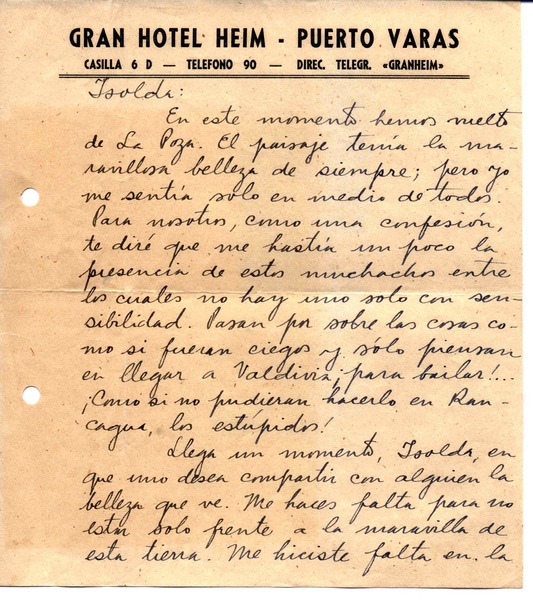 GRAN HOTEL HEIM - PUERTO VARAS
CASILLA 6 D — TELEFONO 90 — DIREC. TELEGR. «GRANHEIM»
Isolda:
En este momento hemos vuelto
de La Poza. El paisaje tenía la ma-
ravillosa belleza de siempre; pero yo
me sentía solo en medio de todos.
Para nosotros, como una confesión,
te diré que me hastía un poco la
presencia de estos muchachos entre
los cuales no hay uno solo con sen-
sibilidad. Pasan por sobre las cosas co-
mo si fueran ciegos y sólo piensan
en llegar a Valdivia ¡para bailar!...
¡Como si no pudieran hacerlo en Ran-
cagua, los estúpidos!
Llega un momento, Isolda, en
que uno desea compartir con alguien la
belleza que ve. Me haces falta para no
estar solo frente a la maravilla de
esta tierra. Me hiciste falta en la